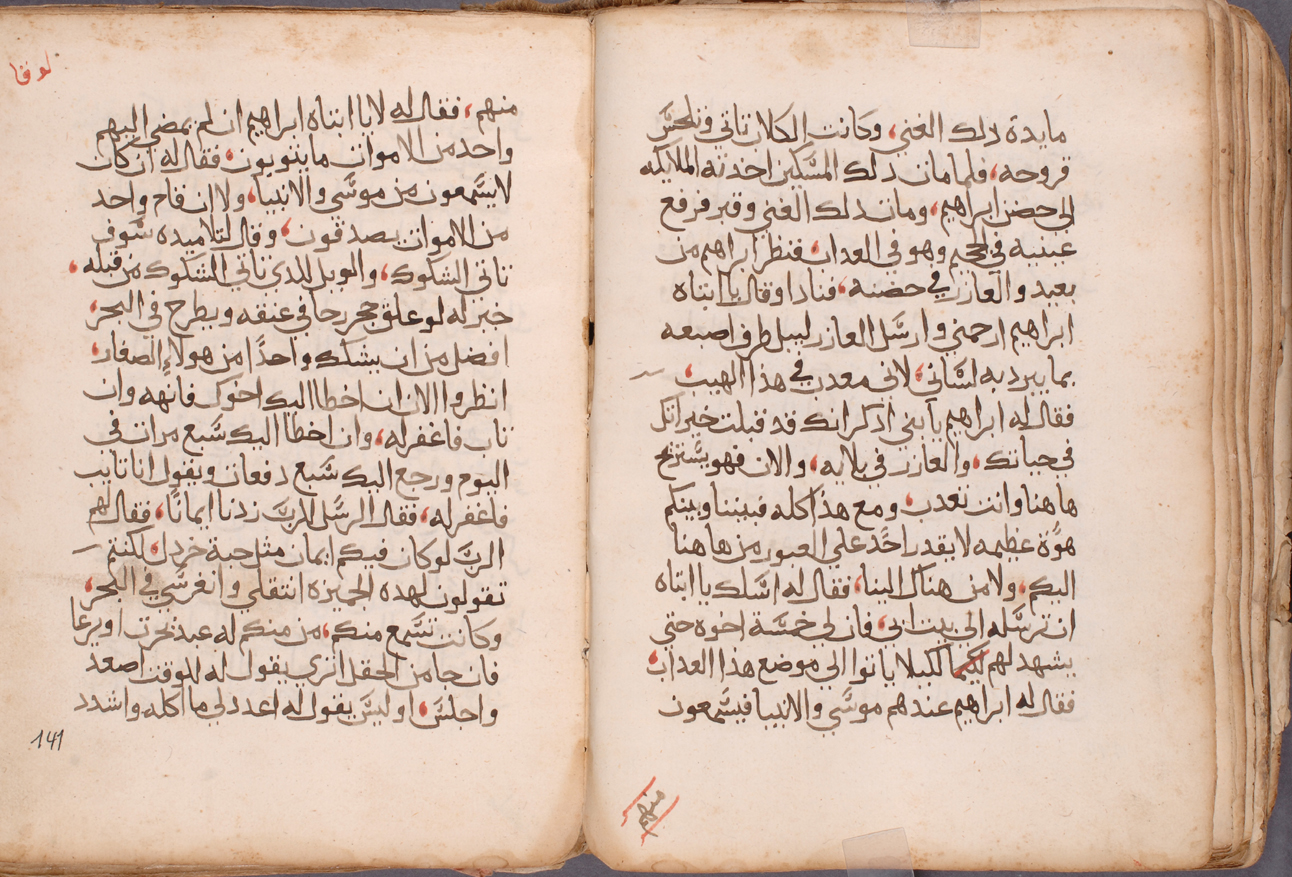 مايدة دلك الغني، وكانت الكلاب تاتي وتلحس
قروحه، فلما مات دلك المسكين اخدته الملايكه
الى حضن ابراهيم، ومات دلك الغني وقبر فرفع
عينيه في الجحيم وهو في العداب، فنظر ابراهيم من
بعيد والعازر في حضنه، فنادا وقال يا ابتاه
ابراهيم ارحمني وارسل العازر ليبل طرف اصبعه
بما يبرد به لساني، لاني معدب في هذا الهيب،
فقال له ابراهيم يا بني ادكر انك قد قبلت خيراتك
في حياتك، والعازر في بلايه، والان فهو يستريح
هاهنا وانت تعدب، ومع هذا كله فبيننا وبينكم
هوة عظيمه لا يقدر احد على العبور من هاهنا
اليكم، ولا من هناك الينا، فقال له اسلك يا ابتاه
ان ترسله الى بيت ابي، فان لي خمسة اخوه حتي
يشهد لهم لكيما لكيلا ياتوا الي موضع هذا العداب،
فقال له ابراهيم عندهم موسي والانبيا فيسمعون
لوقا
منهم، فقال له لا يا ابتاه ابراهيم ان لم يمضي اليهم
واحد من الاموات ما يتوبون، فقال له ان كان
لا يسمعون من موسي والانبيا، ولا ان قام واحد
من الاموات يصدقون، وقال لتلاميده سوف
تاتي الشكوك، والويل للدي تاتي الشكوك من قبله،
خير له لو علق حجر رحا في عنقه ويطرح في البحر،
افضل من ان يشكك واحدًا من هولاء الصغار،
انظروا الان ان اخطا اليك اخوك فانهه وان
تاب فاغفر له، وان اخطا اليك سبع مرات في
اليوم ورجع اليك سبع دفعات ويقول انا تايب
فاغفر له، فقال الرسل للرب زدنا ايمانًا، فقال لهم
الرب لو كان فيكم ايمان مثل حبة خردل، لكنتم
تقولون لهده الجميزه انتقلي وانغرسي في البحر،
وكانت تسمع منكم، من منكم له عبد يحرت او يرعا
فان جا من الحقل اتري يقول له للوقت اصعد
واجلس، او ليس يقول له اعدد لي ما اكله واشدد
141